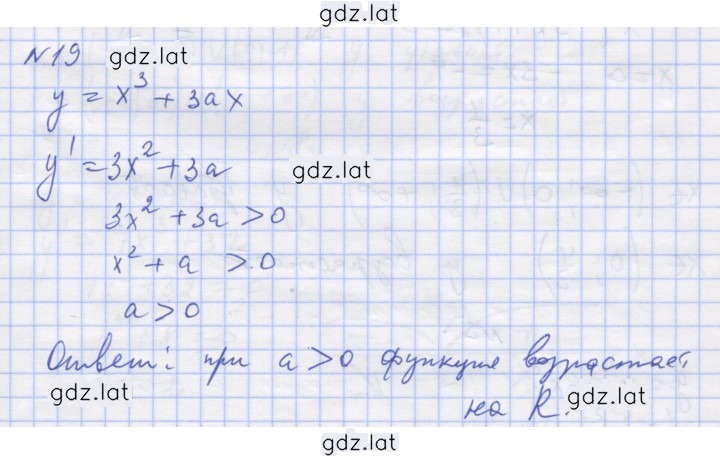 gdz.lat
№19 gdz.lat
y = x³ + 3ax
y' = 3x² + 3a gdz.lat
3x² + 3a > 0
x² + a > 0
a > 0
Ответ: при a > 0 функция возрастает
gdz.lat на R. gdz.lat
gdz.lat